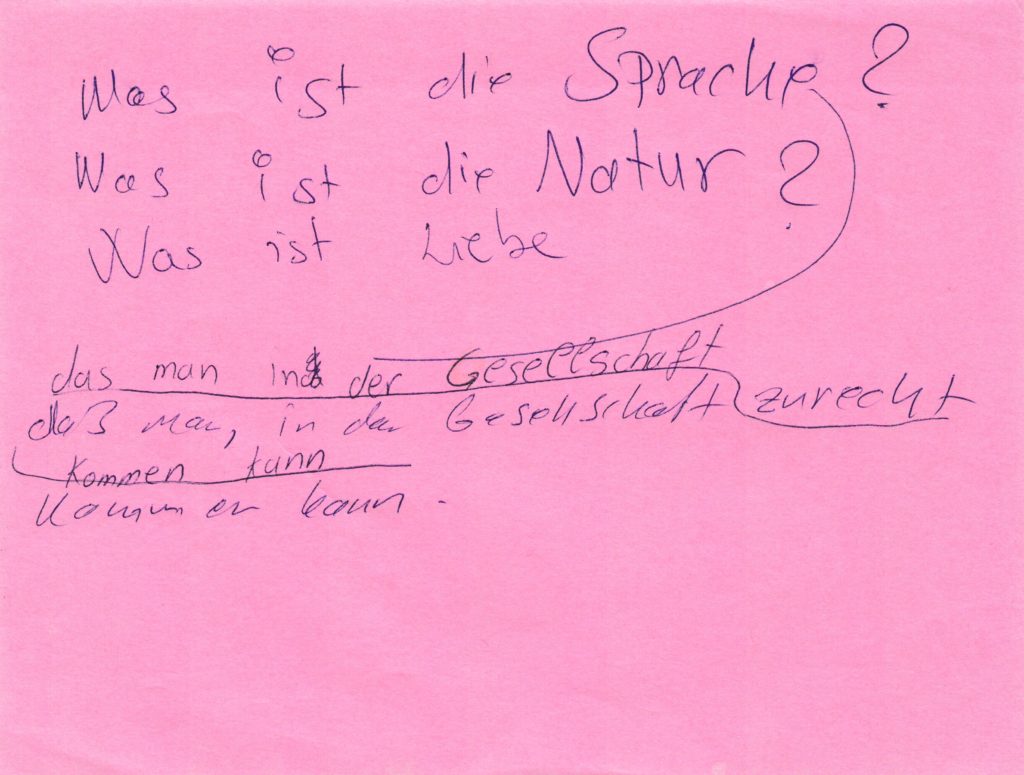 Was ist die Sprache?
Was ist die Natur?
Was ist Liebe
das man in der Gesellschaft
daß man, in der Gesellschaft zurecht
kommen kann
kommen kann.